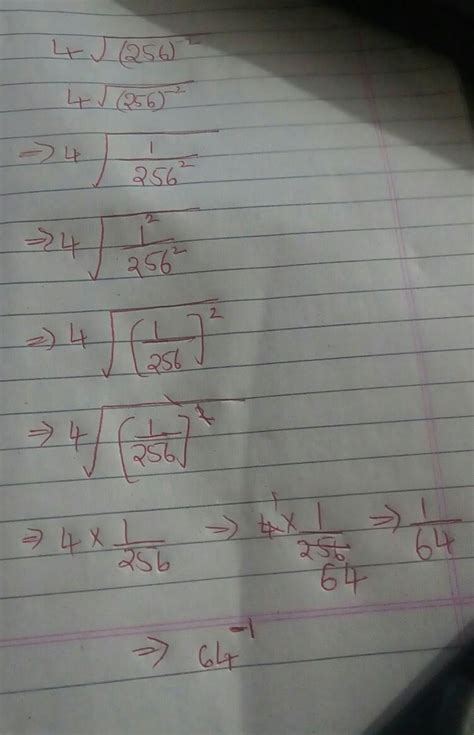 4√(256)^2
4√(256)^-2
⇒ 4√(1/256^2)
⇒ 4√(1^2/256^2)
⇒ 4√[1/256]^2
⇒ 4√[1/256]^2
⇒ 4 × 1/256 ⇒ 4^1 × 1/256 64 ⇒ 1/64
⇒ 64^-1